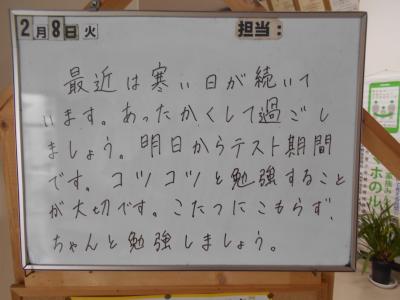 2月8日火 担当:
最近は寒い日が続いて
います。あったかくして過ごし
ましょう。明日からテスト期間
です。コツコツと勉強すること
が大切です。こたつにこもらず、
ちゃんと勉強しましょう。
ホのル